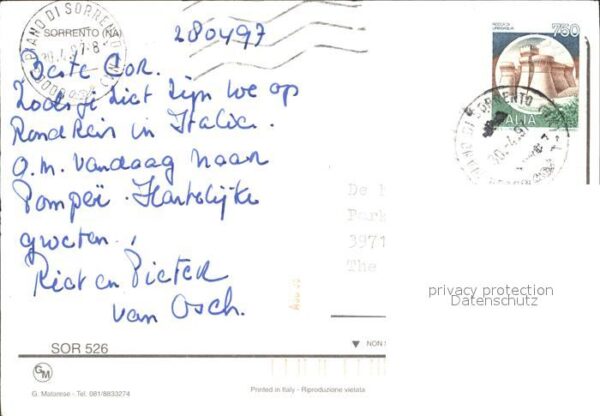 SORRENTO (NA)
280497
Beste Cor.
Zoals je ziet zijn we op
Rond Reis in Italie.
o.m. vandaag naar
Pompeï. Hartelijke
groeten.,
Riet en Pieter
van Osch.
PIANO DI SORRENTO
30.4.97-8
ROCCA DI
URBISAGLIA
750
ITALIA
DI SORRENTO
30.4.97
De
Park
3971
The
privacy protection
Datenschutz
SOR 526
▼ NON
GM
G. Matarese - Tel. 081/8833274
Printed in Italy - Riproduzione vietata